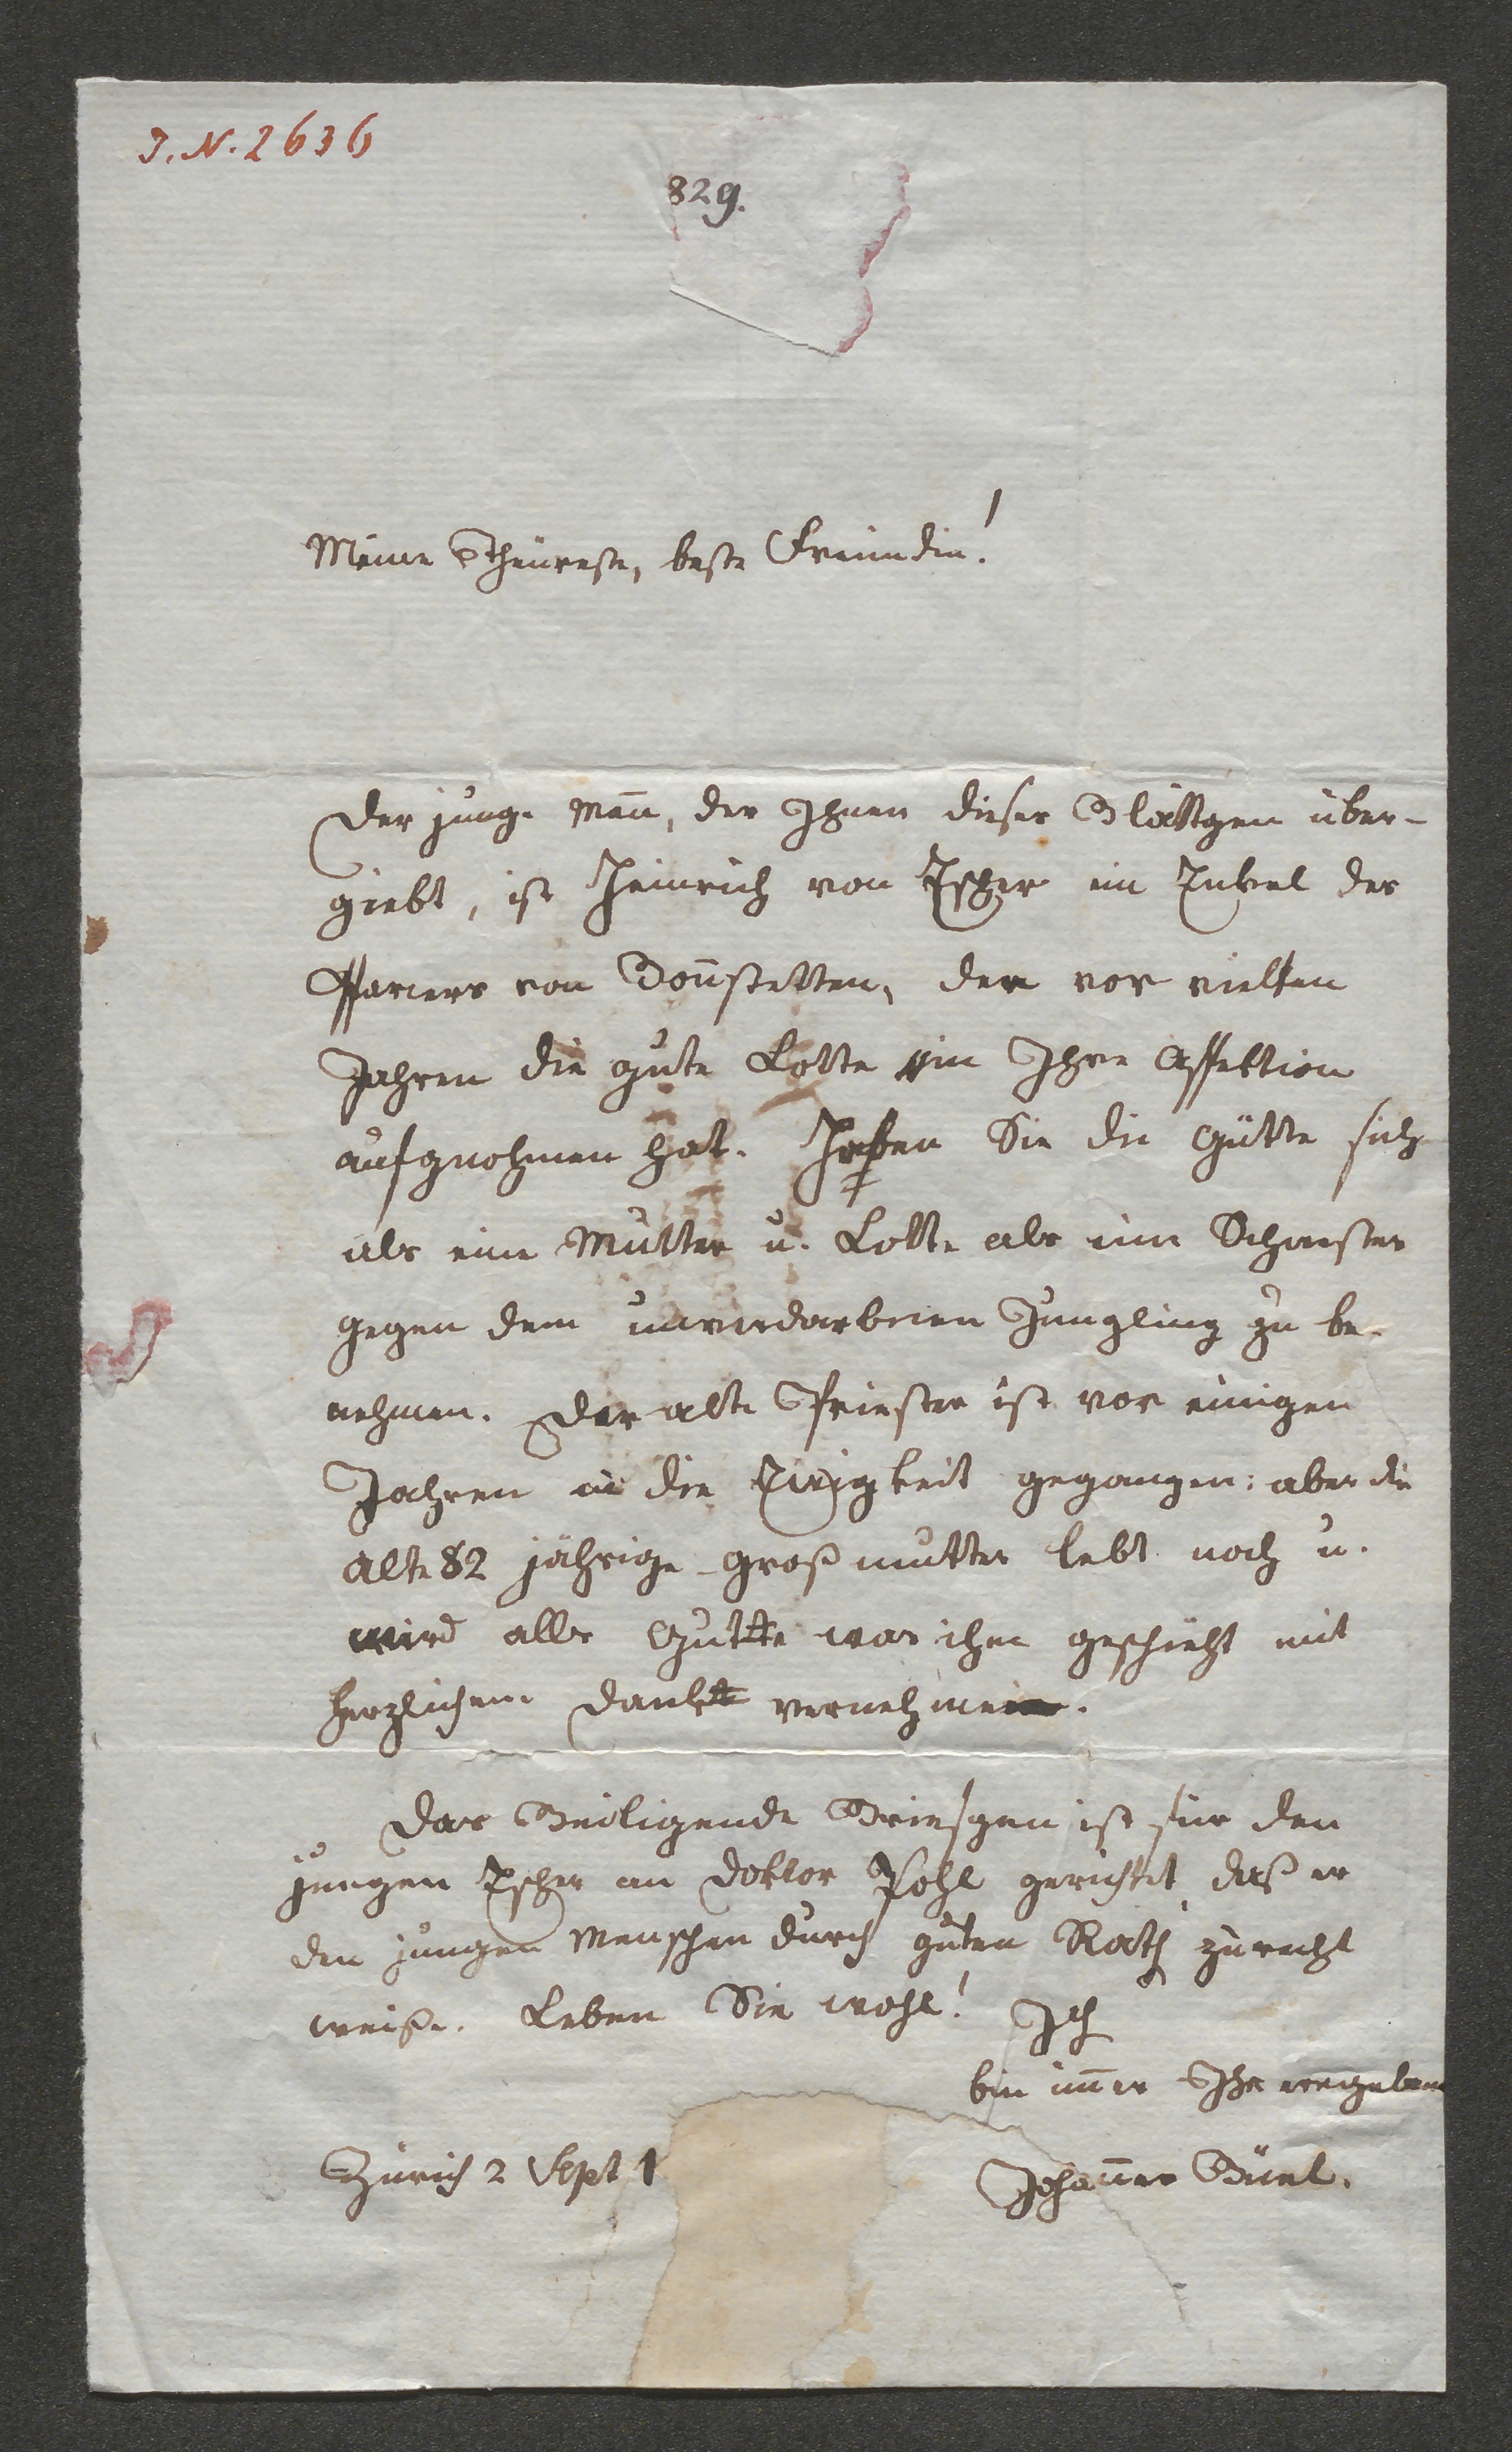 J. N. 2636
829.
Meine Theureste, beste Freundin!
Der junge Mañ, der Ihnen dieses Blättgen über-
giebt, ist Heinrich von Escher ein Enkel des
Pfarrers von Bonstetten, der vor vielen
Jahren die gute Lotte in Ihre Affektion
aufgnohmen hat. Haben Sie die Gütte sich
als eine Mutter u. Lotte als eine Schwester
gegen dem unverdorbenen Jüngling zu be-
nehmen. Der alte Priester ist vor einigen
Jahren in die Ewigkeit gegangen: aber die
alte 82 jährige Großmutter lebt noch u.
wird alles Gutte was ihm geschieht mit
herzlichem Dank vernehmen.
Das Beiligende Briefgen ist für den
jungen Escher an Doktor Pohl gerichtet, daß er
den jungen Menschen durch guten Rath zurecht
weise. Leben Sie wohl! Ich
bin im̄er Ihr ergebene
Zürich 2 Sept 1
Johañes Büel.